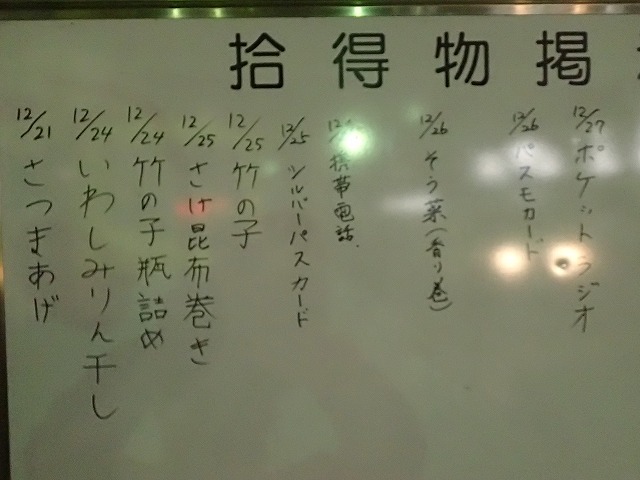 拾得物掲
12/27 ポケットラジオ
12/26 パスモカード
12/26 そう菜(香り巻)
携帯電話、
12/25 シルバーパスカード
12/25 竹の子
12/25 さけ昆布巻き
12/24 竹の子瓶詰め
12/24 いわしみりん干し
12/21 さつまあげ